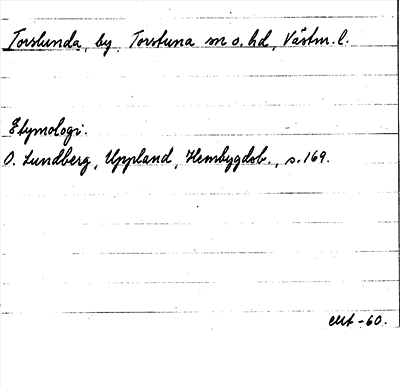 Torslunda, by, Torstuna sn o. hd, Västm. l.
Etymologi.
O. Lundberg, Uppland, Hembygdsb., s. 169.
-60.